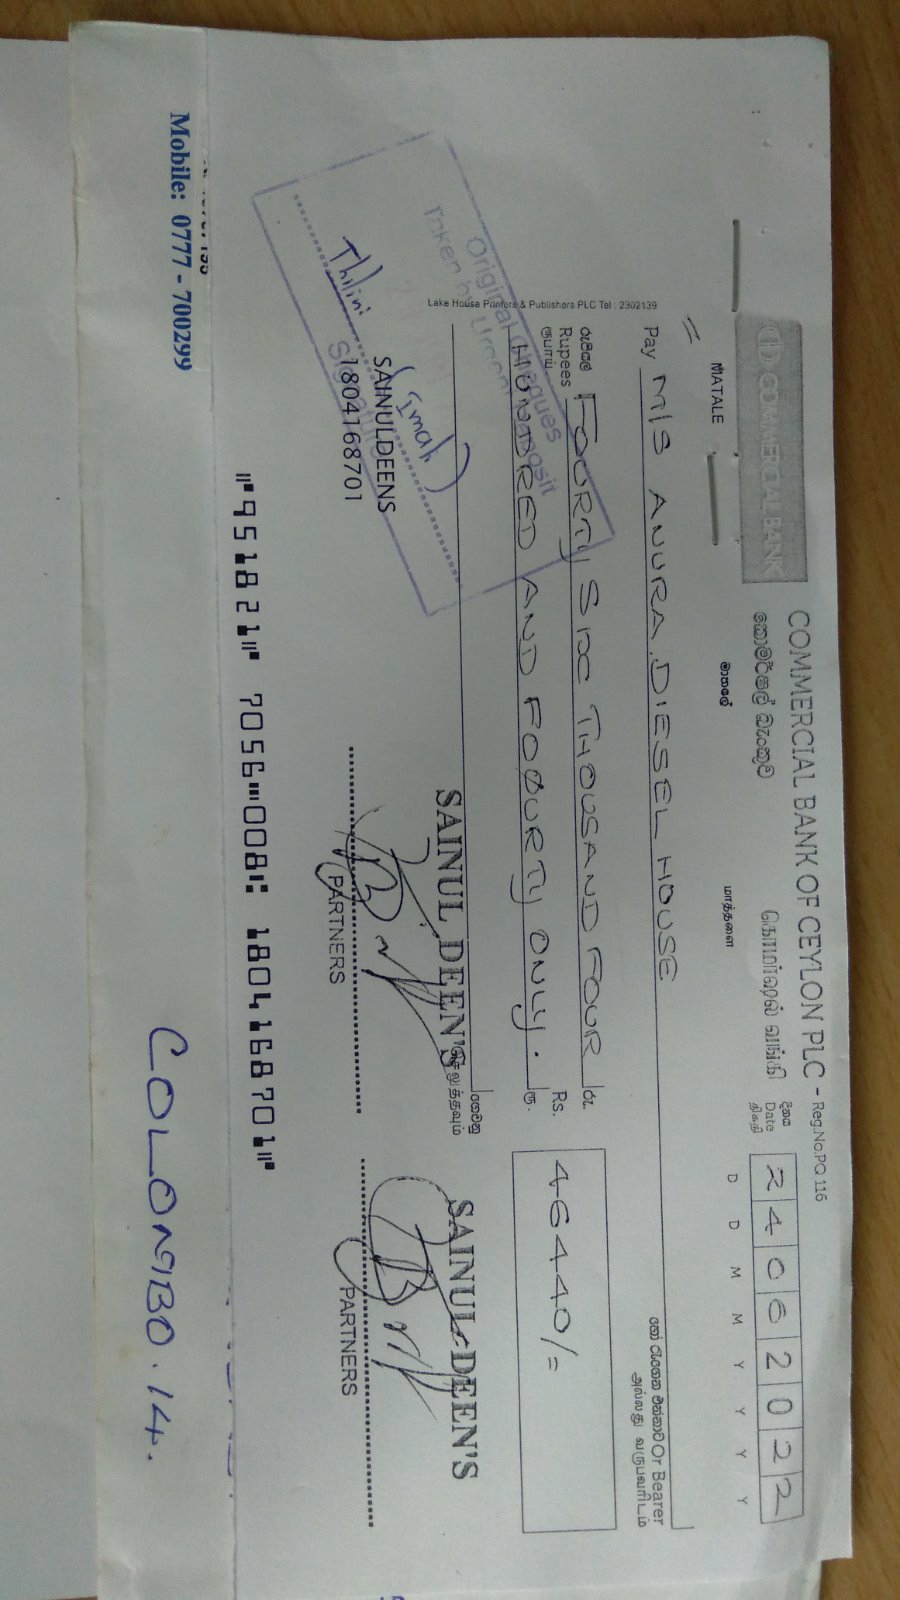 COMMERCIAL BANK OF CEYLON PLC - Reg.No.PQ 116
COMMERCIAL BANK
කොමර්ෂල් බැංකුව
கொமர்ஷல் வங்கி
MATALE
මාතලේ
மாத்தளை
දිනය
Date
திகதி
2 4 0 6 2 0 2 2
D D M M Y Y Y Y
Pay M/S ANURA DIESEL HOUSE
හෝ රැගෙන එන්නාට Or Bearer
அல்லது வருபவரிடம்
රුපියල්
Rupees
ரூபாய்
FOURTY SIX THOUSAND FOUR
රු.
HUNDRED AND FOURTY ONLY.
Rs.
ரூ.
46440/=
ගෙවනු
செலுத்தவும்
Lake House Printers & Publishers PLC Tel : 2302139
Original Cheques
Taken by Urgent Deposit
Signature
Thilini
SAINULDEENS
1804168701
SAINUL DEEN'S
PARTNERS
SAINUL DEEN'S
PARTNERS
⑈951821⑈ 7056⑉008⑆ 1804168701⑈
Mobile: 0777 - 700299
COLOMBO.14.